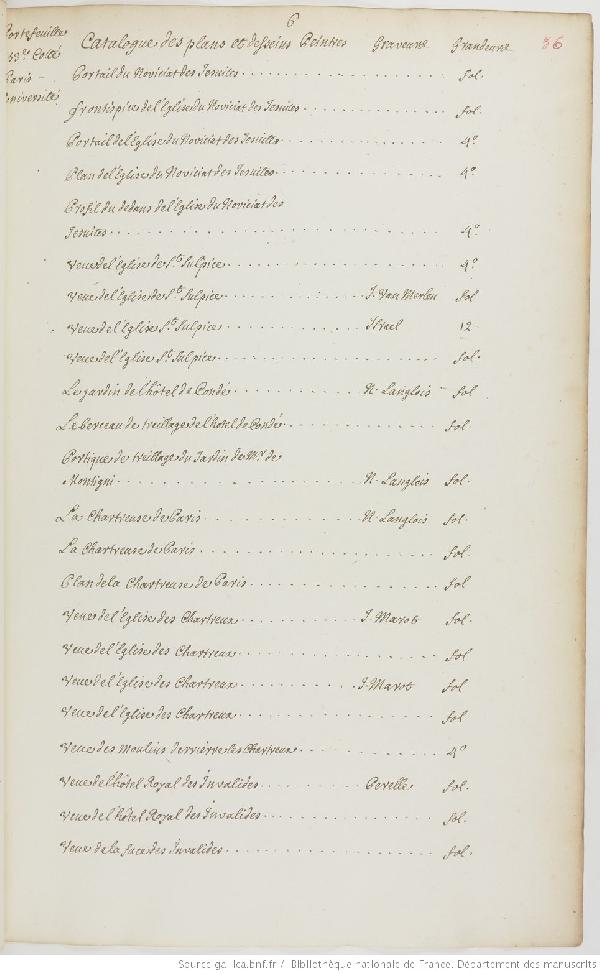 6
Portefeuille
13.e Cotté
Paris –
Université
Catalogue des plans et desseins Peintres Graveure Grandeure 36
Portail du Noviciat des Jesuites fol.
frontispice de l'Eglise du Noviciat des Jesuites fol.
Portail de l'Eglise du Noviciat des Jesuites 4º
Plan de l'Eglise du Noviciat des Jesuites 4º
Profil du dedans de l'Eglise du Noviciat des
Jesuites 4º
Veue de l'Eglise de St. Sulpice 4º
Veue de l'Eglise de St. Sulpice J. Van Merlen fol
Veue de l'Eglise St. Sulpice Israel 12
Veue de l'Eglise St. Sulpice fol.
Le jardin de l'hôtel de Condé N. Langlois – fol
Le berceau de treillage de l'hotel de Condé fol.
Portique de treillage du Jardin de Mr. de
Montigni N. Langlois fol.
La Chartreuse de Paris N. Langlois fol.
La Chartreuse de Paris fol.
Plan de la Chartreuse de Paris fol
Veue de l'Eglise des Chartreux J. Marot fol.
Veue de l'Eglise des Chartreux fol
Veue de l'Eglise des Chartreux J. Marot fol
Veue de l'Eglise des Chartreux fol
Veue des Moulins derrierre les Chartreux 4º
Veue de l'hôtel Royal des Invalides Perelle fol.
Veue de l'hôtel Royal des Invalides fol.
Veue de la face des Invalides fol.
Source gallica.bnf.fr / Bibliothèque nationale de France. Département des manuscrits